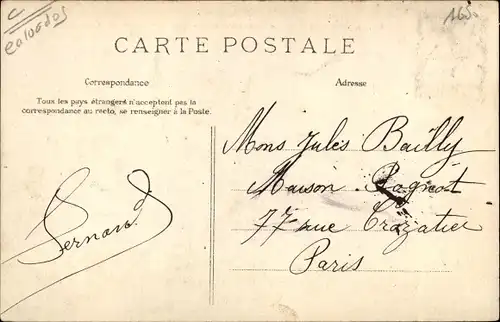 calvados
1650
CARTE POSTALE
Correspondance
Adresse
Tous les pays étrangers n'acceptent pas la
correspondance au recto, se renseigner à la Poste.
Mons Jules Bailly
Maison
77 rue Crozatier
Paris
Fernand